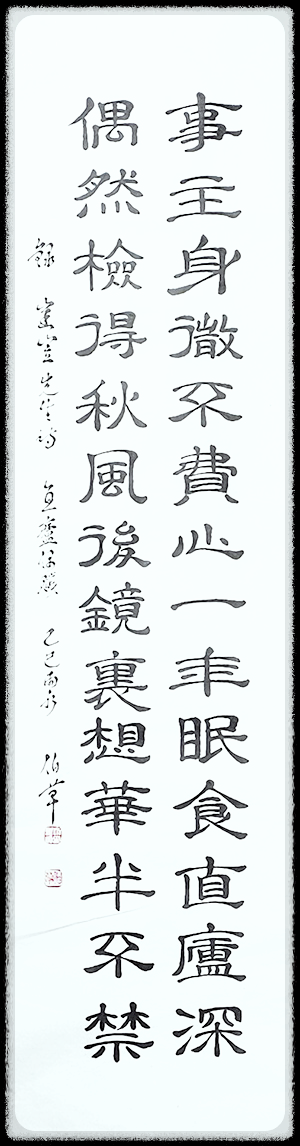 事主身微不費心一年眠食直廬深
偶然檢得秋風後鏡裏想華半不禁
錄 先生詩 直廬 乙巳雨水